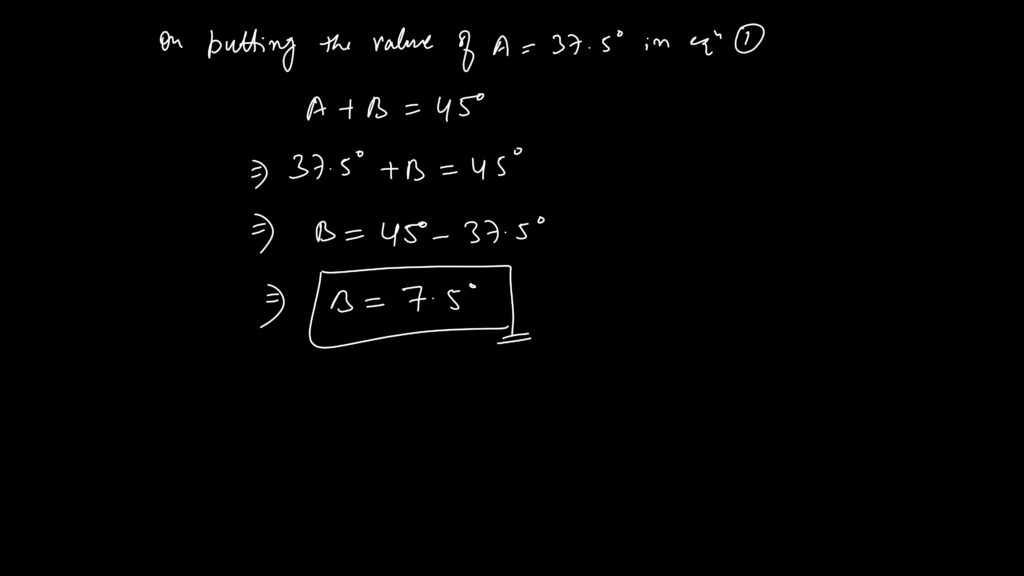 On putting the value of A = 37.5° in eqⁿ ①
A + B = 45°
⇒ 37.5° + B = 45°
⇒ B = 45° - 37.5°
⇒ B = 7.5°